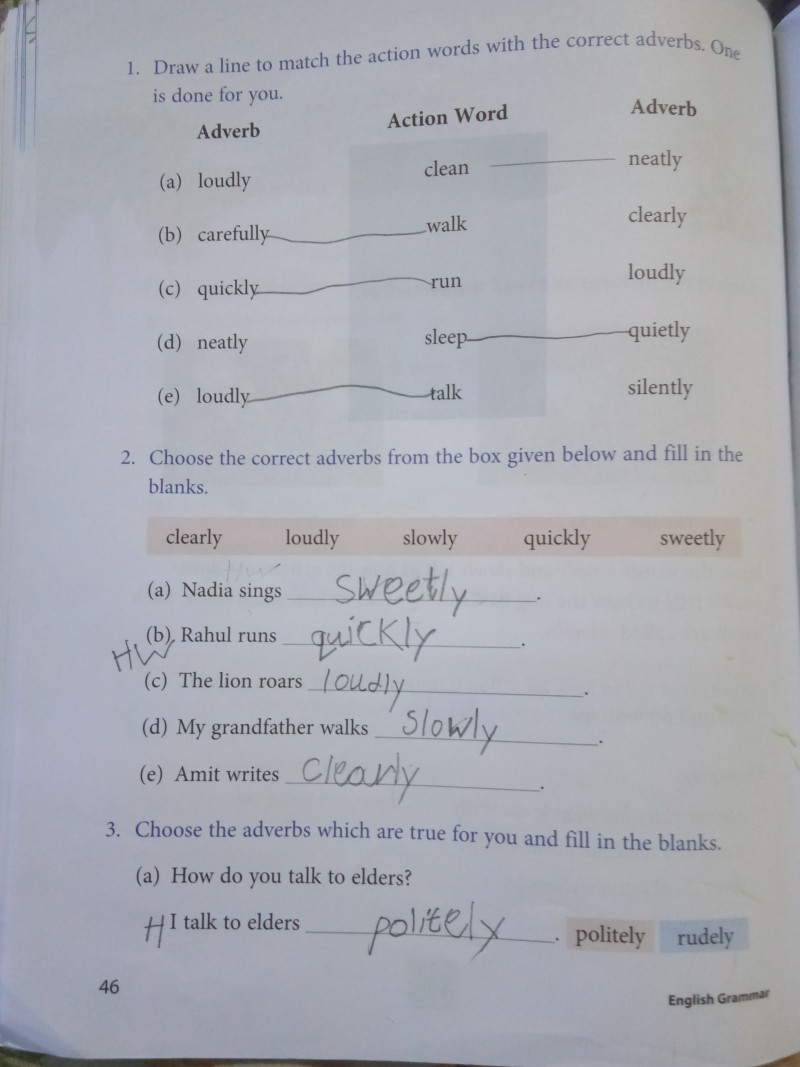 1. Draw a line to match the action words with the correct adverbs. One
is done for you.
Adverb Action Word Adverb
(a) loudly clean neatly
(b) carefully walk clearly
(c) quickly run loudly
(d) neatly sleep quietly
(e) loudly talk silently
2. Choose the correct adverbs from the box given below and fill in the
blanks.
clearly loudly slowly quickly sweetly
HW
(a) Nadia sings sweetly.
(b) Rahul runs quickly.
HW
(c) The lion roars loudly.
(d) My grandfather walks slowly.
(e) Amit writes Clearly.
3. Choose the adverbs which are true for you and fill in the blanks.
(a) How do you talk to elders?
H I talk to elders politely. politely rudely
46 English Grammar